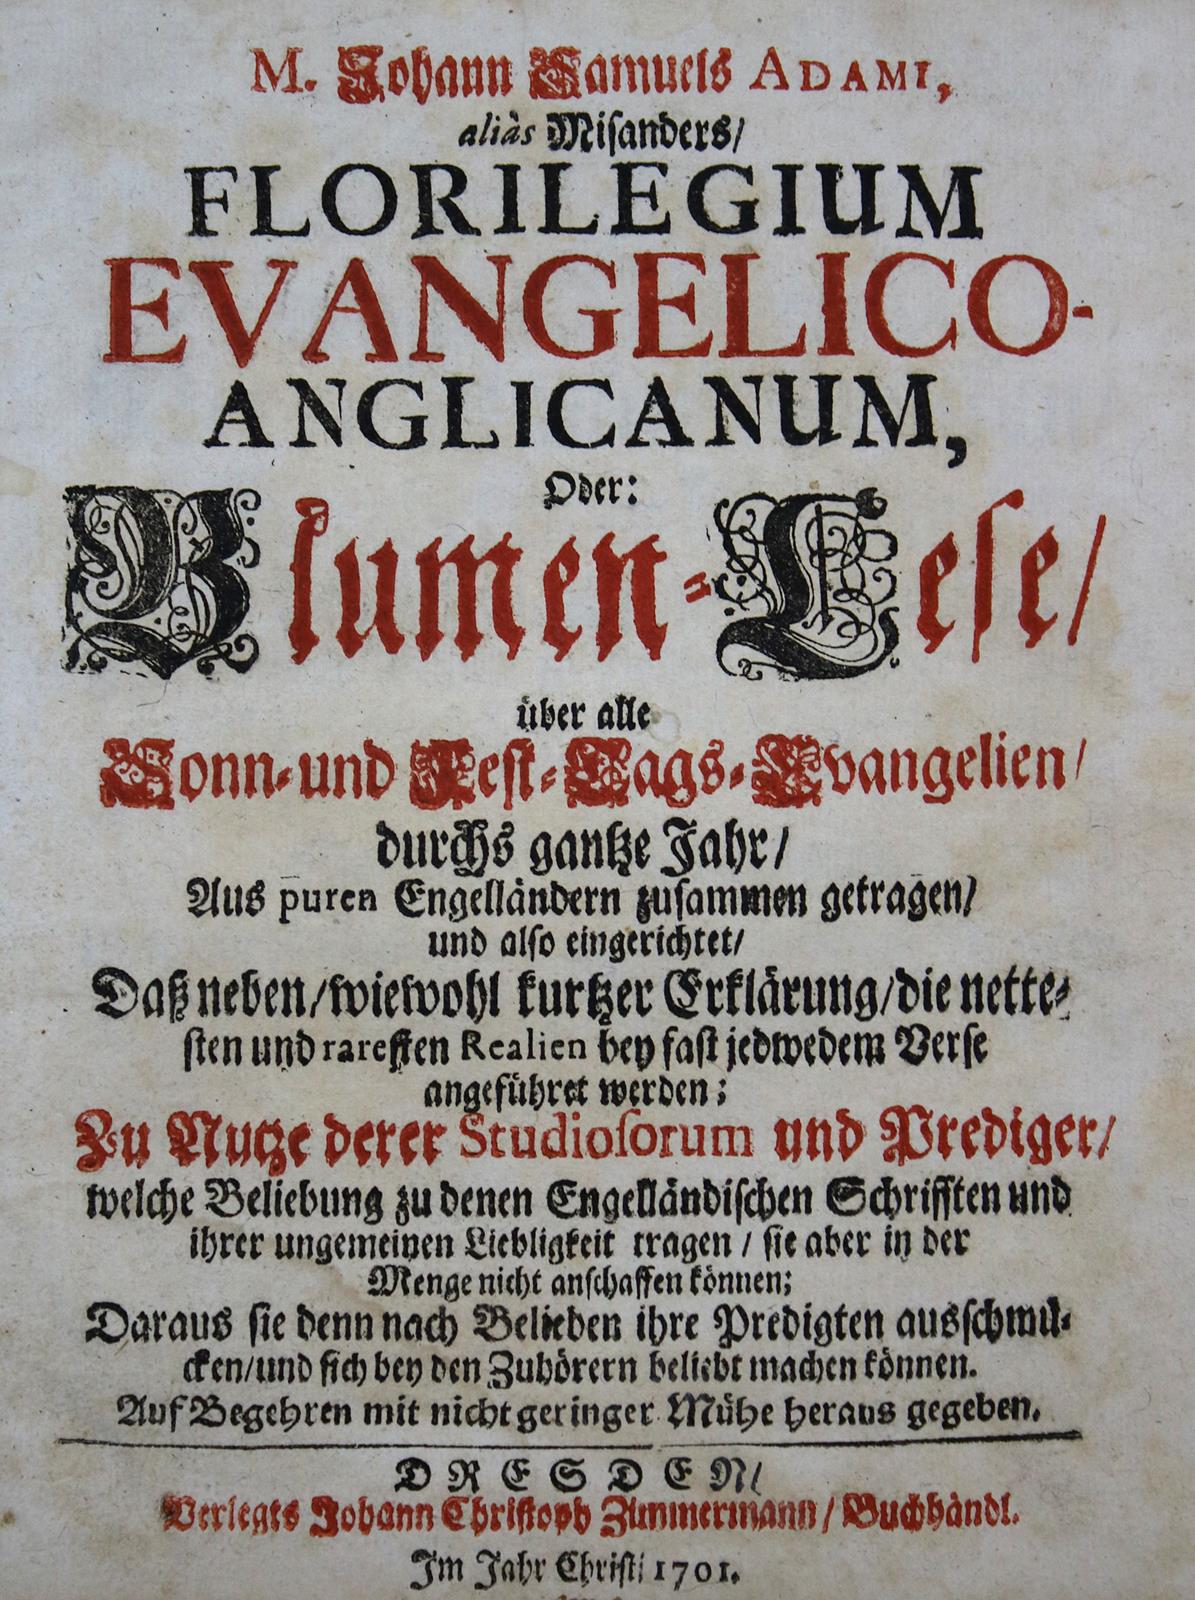 M. Johann Samuels ADAMI,
aliàs Misanders/
FLORILEGIUM
EVANGELICO-
ANGLICANUM,
Oder:
Blumen-Lese/
über alle
Sonn- und Fest-Tags-Evangelien/
durchs gantze Jahr/
Aus puren Engelländern zusammen getragen/
und also eingerichtet/
Daß neben/ wiewohl kurtzer Erklärung/ die nette-
sten und raresten Realien bey fast jedwedem Verse
angeführet werden;
Zu Nutze derer Studiosorum und Prediger/
welche Beliebung zu denen Engelländischen Schrifften und
ihrer ungemeinen Liebligkeit tragen / sie aber in der
Menge nicht anschaffen können;
Daraus sie denn nach Belieben ihre Predigten ausschmü-
cken/ und sich bey den Zuhörern beliebt machen können.
Auf Begehren mit nicht geringer Mühe heraus gegeben.
DRESDEN/
Verlegts Johann Christoph Zimmermann/ Buchhändl.
Im Jahr Christi 1701.